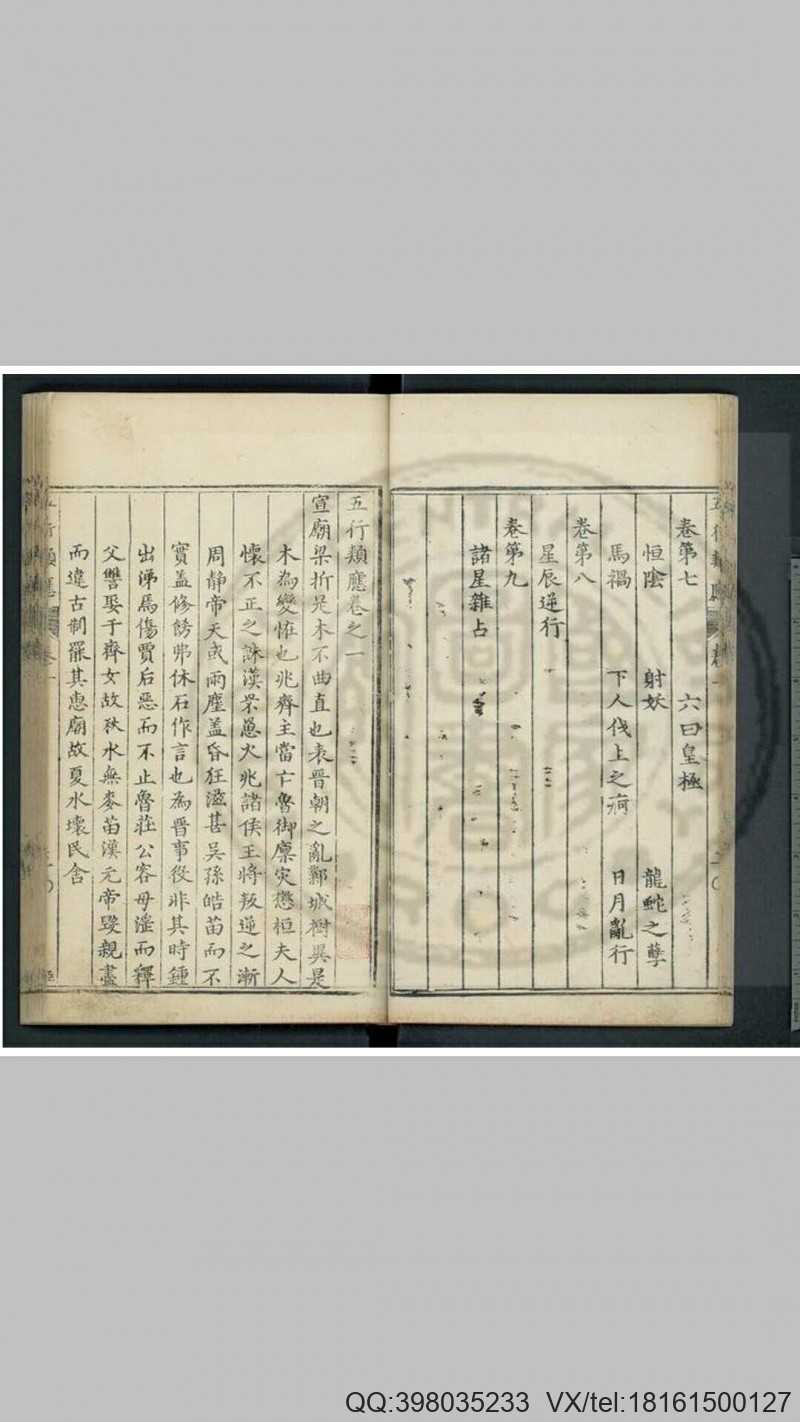 卷第七 六曰皇極
恒陰 射妖 龍蛇之孽
馬禍 下人伐上之痾 日月亂行
卷第八
星辰逆行
卷第九
諸星雜占
五行類應卷之一
宣廟梁折是木不曲直也表晉朝之亂鄴城樹異是
木為變恠也兆齊主當亡魯御廩災懲桓夫人
懷不正之誅漢罘罳火兆諸侯王將叛逆之漸
周靜帝天或雨塵盖昏狂滋甚吳孫皓苗而不
實盖修餝弗休石作言也為晉事役非其時鍾
出涕焉傷賈后惡而不止魯莊公容母滛而釋
父讐娶于齊女故秋水無麥苗漢元帝踐親盡
而違古制罷其惠廟故夏水壞民舍
QQ:398035233 VX/tel:18161500127